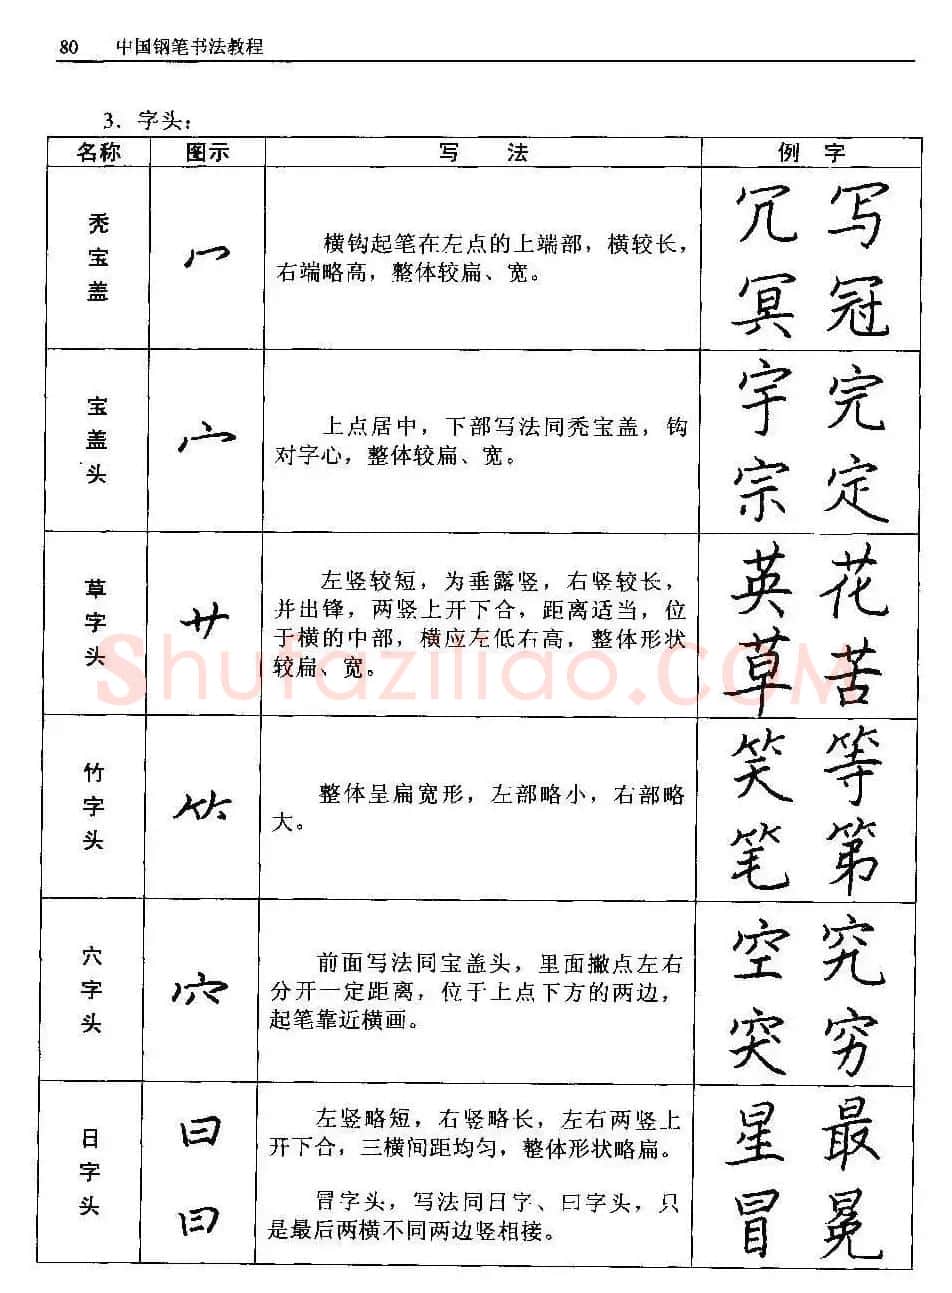 80 中国钢笔书法教程
3. 字头:
名称 图示 写 法 例 字
秃宝盖
冖
横钩起笔在左点的上端部，横较长，
右端略高，整体较扁、宽。
冗 写
冥 冠
宝盖头
宀
上点居中，下部写法同秃宝盖，钩
对字心，整体较扁、宽。
宇 完
宗 定
草字头
艹
左竖较短，为垂露竖，右竖较长，
并出锋，两竖上开下合，距离适当，位
于横的中部，横应左低右高，整体形状
较扁、宽。
英 花
草 苦
竹字头
⺮
整体呈扁宽形，左部略小，右部略
大。
笑 等
笔 第
穴字头
穴
前面写法同宝盖头，里面撇点左右
分开一定距离，位于上点下方的两边，
起笔靠近横画。
空 究
突 穷
日字头
日
冃
左竖略短，右竖略长，左右两竖上
开下合，三横间距均匀，整体形状略扁。
冒字头，写法同日字、曰字头，只
是最后两横不同两边竖相接。
星 最
冒 冕
Shufaziliao.COM